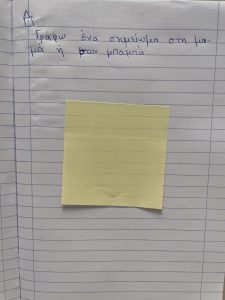 Α
Γράφω ένα σημείωμα στη μα-
μά ή στον μπαμπά.